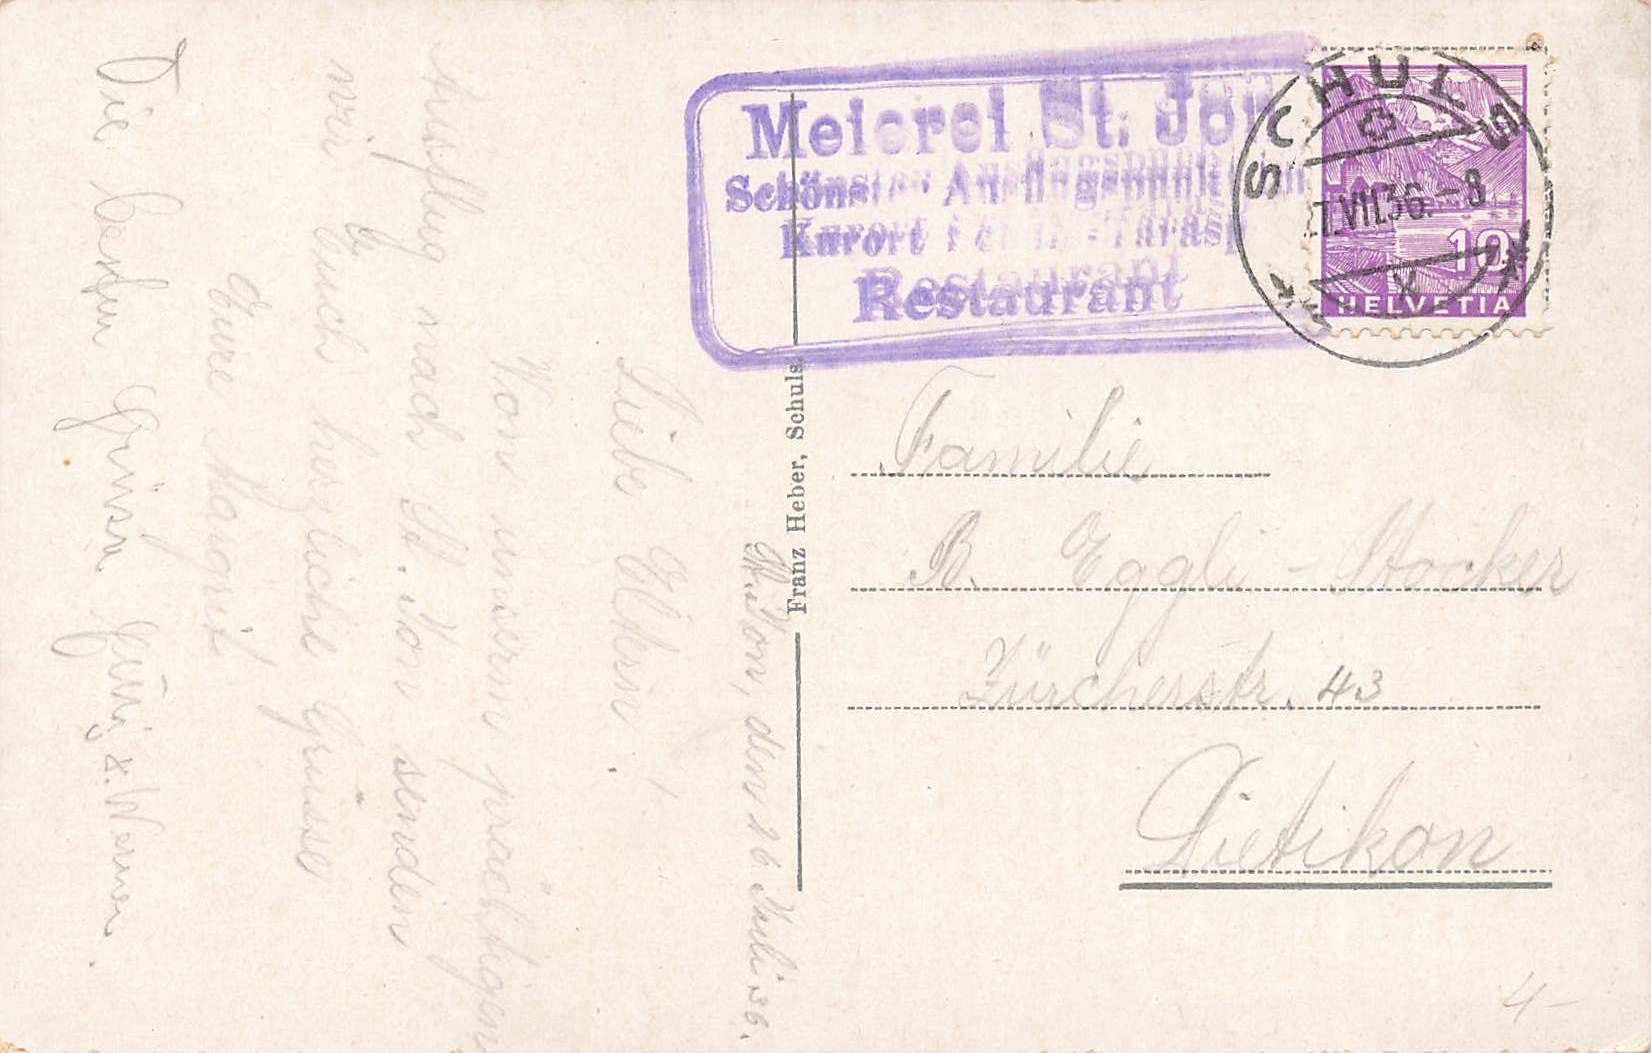 St. Jon, den 26. Juli 36.
Liebe Eltern!
Von unserm prächtigen
Ausflug nach St. Jon senden
wir Euch herzliche Grüsse
Eure Margrit
Die besten Grüsse
& Werner.
Franz Heber, Schuls.
Meierei St. Jon
Schönster Ausflugspunkt
Kurort - Tarasp
Restaurant
SCHULS
27.VII.36.-8
10
HELVETIA
Familie
B. Eggli-Stocker
Zürcherstr. 43
Dietikon
4-